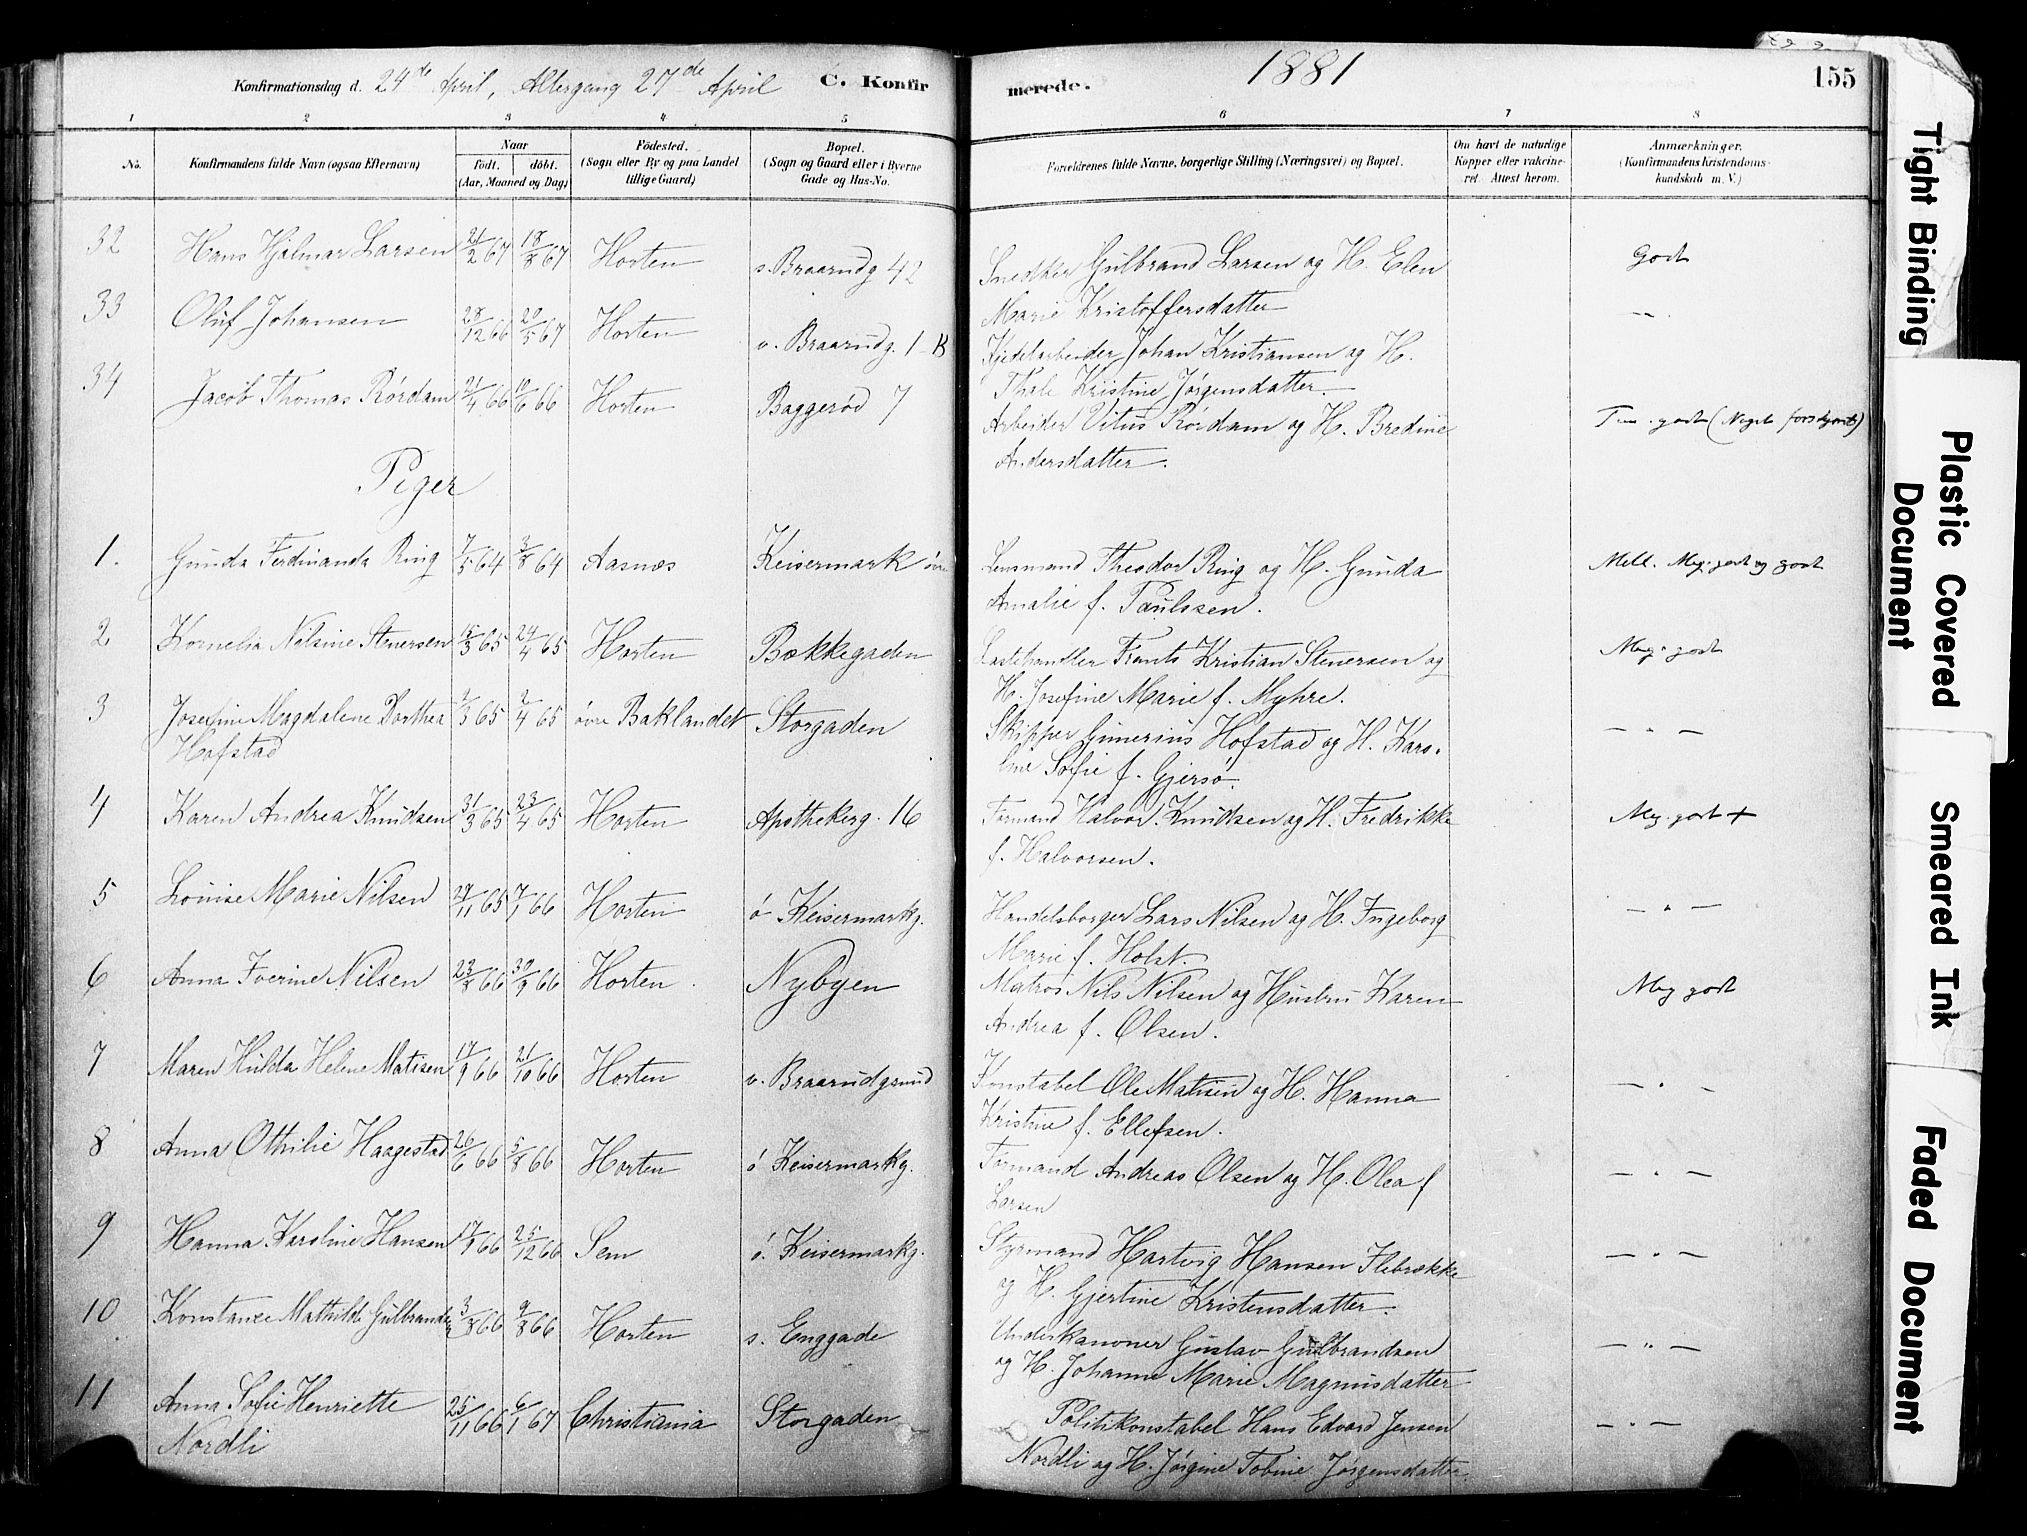 Konfirmationsdag d. 24de April, Altergang 27de April C. Konfir
merede. 1881 155
1 2 3 4 5 6 7 8
No. Konfirmandens fulde Navn (ogsaa Efternavn) Naar født. døbt. (Aar, Maaned og Dag) Fødested. (Sogn eller By og paa Landet tillige Gaard) Bopæl. (Sogn og Gaard eller i Byerne Gade og Hus-No. Forældrenes fulde Navne, borgerlige Stilling (Næringsvei) og Bopæl. Om havt de naturlige Kopper eller vakcineret. Attest herom. Anmærkninger. (Konfirmandens Kristendomskundskab m. V.)
32 Hans Hjalmar Larsen 21/2 67 18/8 67 Horten s. Braarudg 42 Snedker Gulbrand Larsen og H. Elen Godt
Marie Kristoffersdatter
33 Oluf Johansen 28/12 66 20/5 67 Horten v. Braarudg. 1 B Kjedelarbeider Johan Kristiansen og H. — " —
Thale Kristine Jørgensdatter
34 Jacob Thomas Rørdam 21/4 66 10/6 66 Horten Baggerød 7 Arbeider Vitus Rørdam og H. Bredine godt (Noget
Andersdatter.
Piger
1. Gunda Ferdinanda Ring 7/5 64 3/8 64 Aasnes Keisermark øvre Lensmand Theodor Ring og H. Gunda Mell. Meg. godt og godt
Amalie f. Paulssen.
2 Kornelia Nilsine Stenersen 15/3 65 24/4 65 Horten Bækkegaden Lastehandler Frants Kristian Stenersen og Meg. godt
H. Josefine Marie f. Myhre.
3 Josefine Magdalene Dorthea 2/3 65 2/4 65 øvre Baklandet Storgaden Skipper Gunerius Hofstad og H. Karo- — " —
Hofstad line Sofie f. Gjersø.
4 Karen Andrea Knudsen 31/3 65 23/4 65 Horten Apothekerg. 16 Formand Halvor Knudsen og H. Fredrikke Meg. godt +
f. Halvorsen.
5 Louise Marie Nilsen 27/11 65 7/1 66 Horten ø Keisermarkg. Handelsborger Lars Nilsen og H. Ingeborg — " —
Marie f. Holst.
6 Anna Iverine Nilsen 23/8 66 30/9 66 Horten Nybyen Matros Nils Nilsen og Hustru Karen Meg godt
Andrea f. Olsen.
7 Maren Hulda Helene Matisen 17/9 66 21/10 66 Horten v. Braarudgrund Konstabel Ole Matisen og H. Hanna — " —
Kristine f. Ellefsen.
8 Anna Othilie Haagestad 26/6 66 5/8 66 Horten ø Keisermarkg. Formand Andreas Olsen og H. Olea f — " —
Larsen
9 Hanna Karoline Hansen 17/9 66 25/12 66 Sem ø. Keisermarkg. Styrmand Hartvig Hansen Flebrække — " —
og H. Gjertine Kristensdatter.
10 Konstance Mathilde Gulbrandsen 3/8 66 9/8 66 Horten s. Enggade Underkanoner Gustav Gulbrandsen — " —
og H. Johanne Marie Magnusdatter
11 Anna Sofie Henriette 25/11 66 6/1 67 Christiania Storgaden Politikonstabel Hans Edvard Jensen — " —
Nordli Nordli og H. Jørgine Tobine Jørgensdatter.
Tight Binding
Plastic Covered Document
Smeared Ink
Faded Document